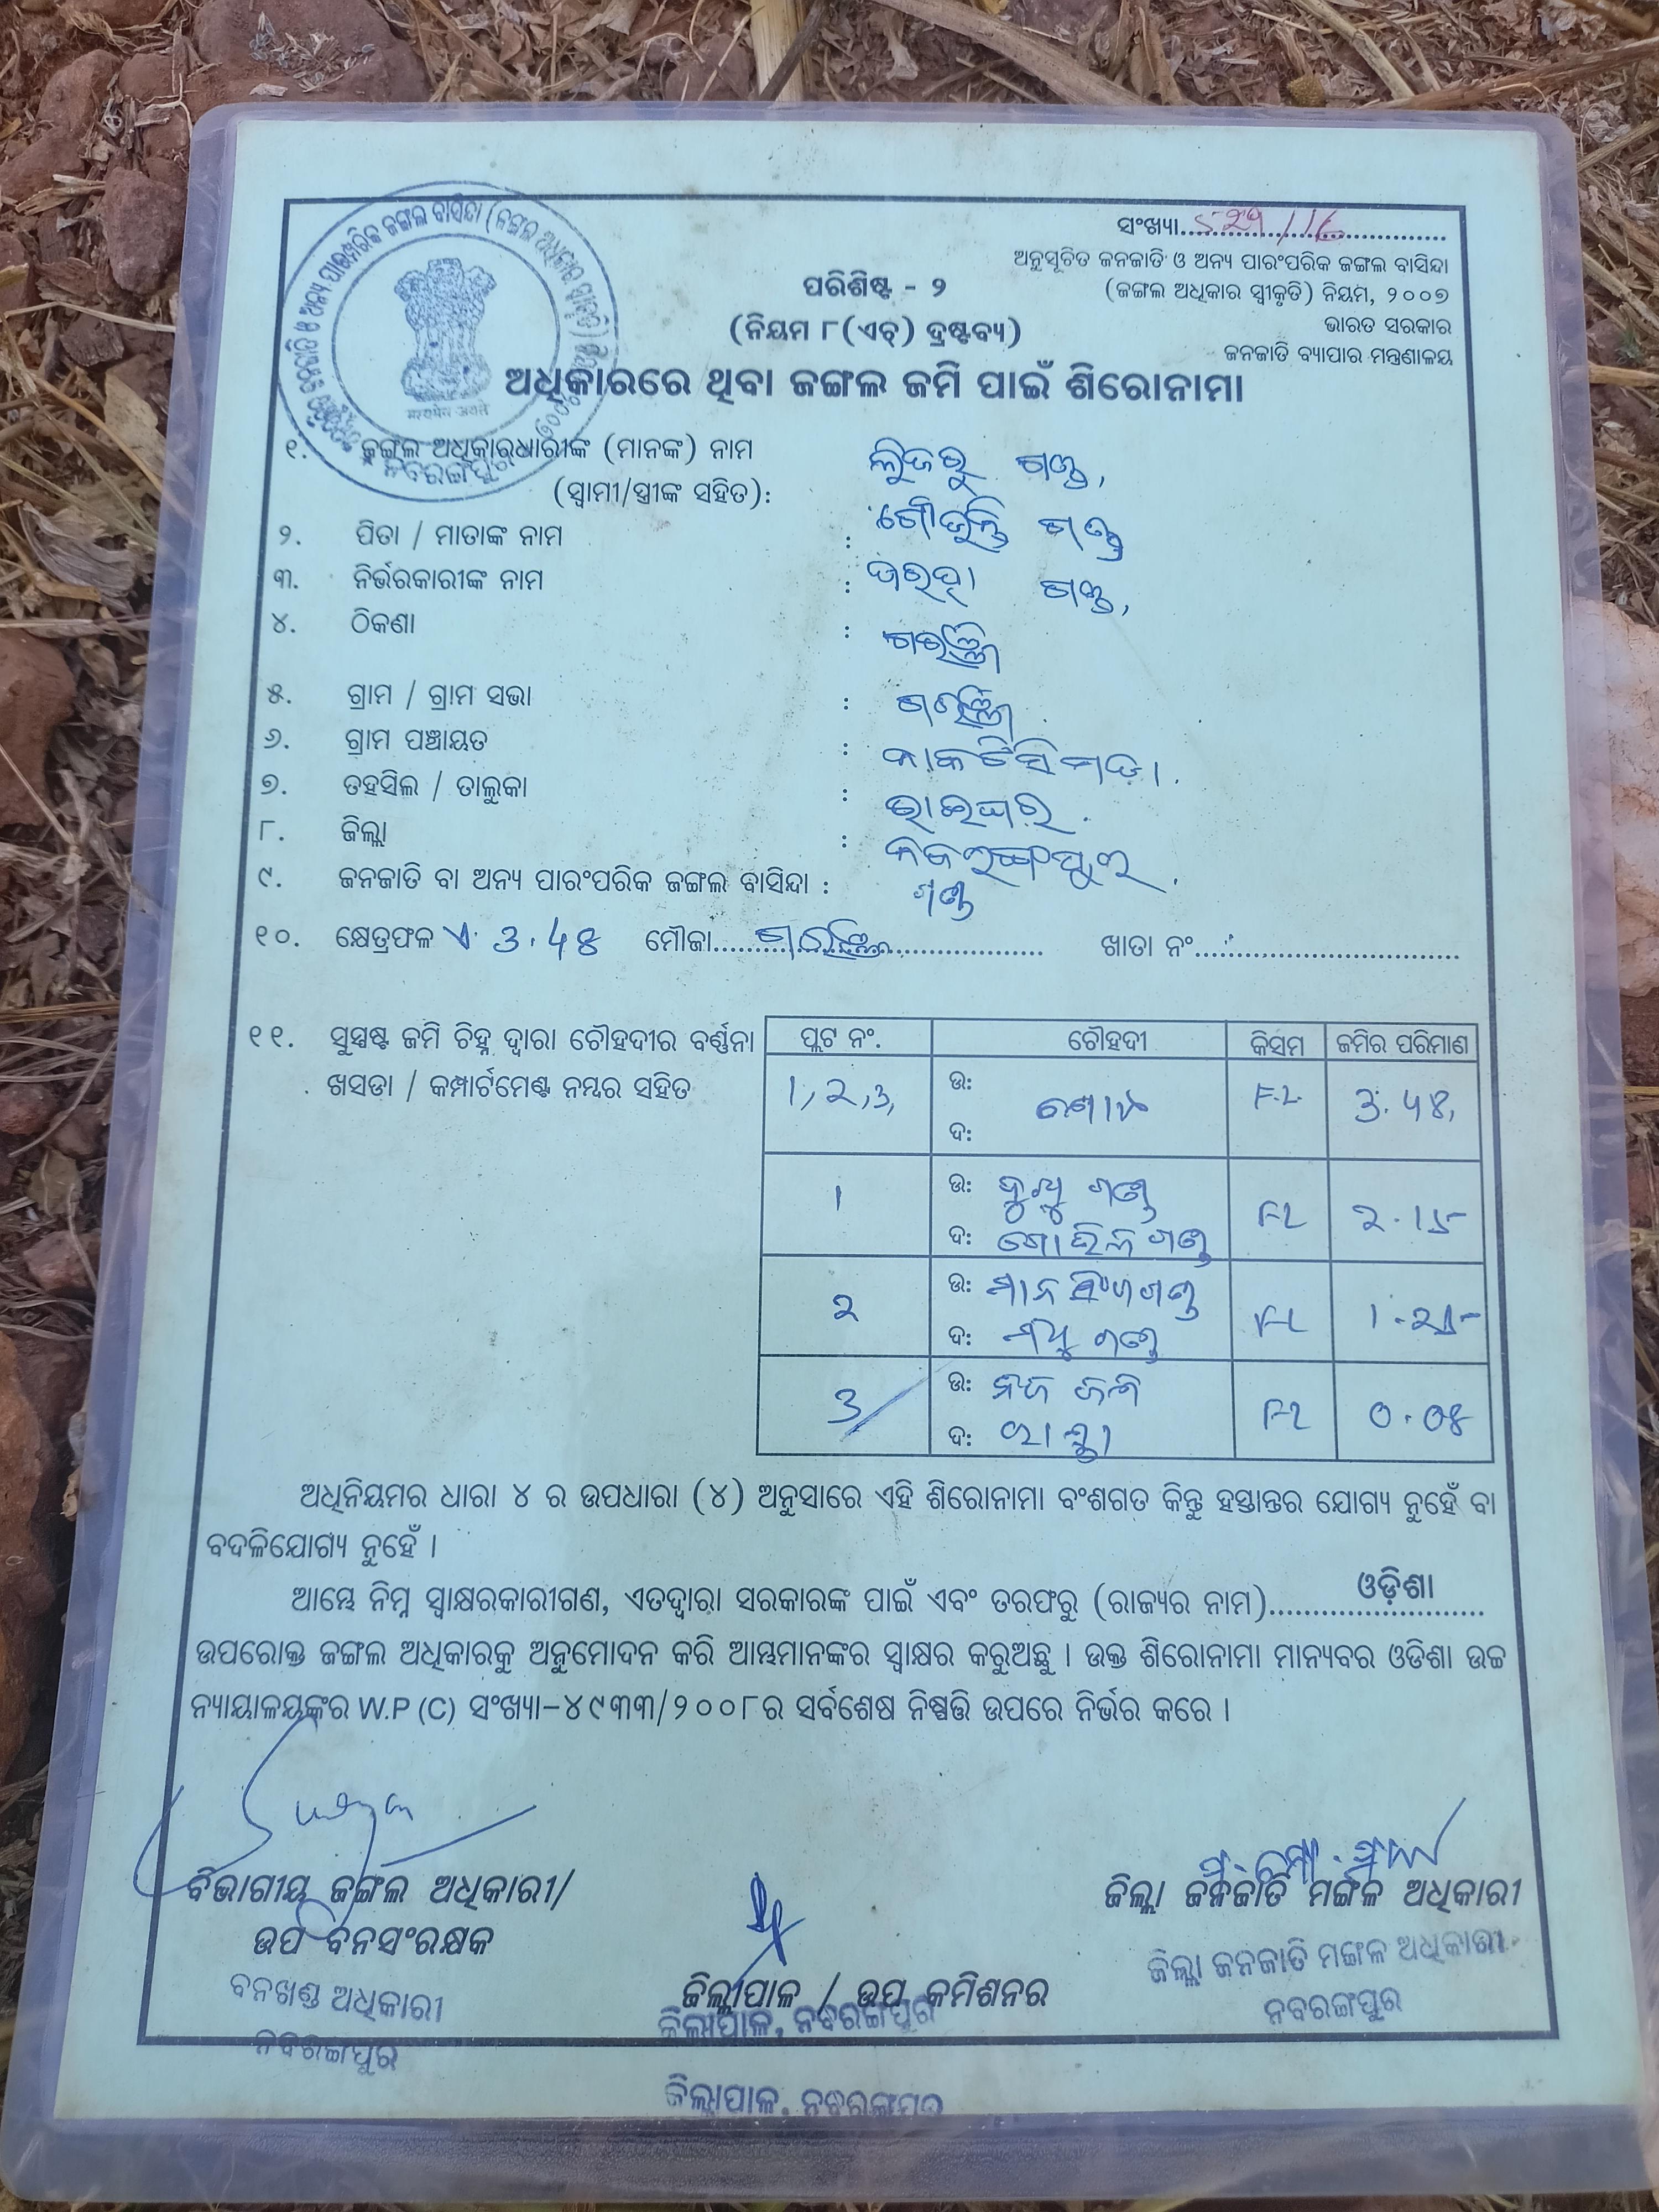 ସଂଖ୍ୟା..... 529/16
ଅନୁସୂଚିତ ଜନଜାତି ଓ ଅନ୍ୟ ପାରଂପରିକ ଜଙ୍ଗଲ ବାସିନ୍ଦା
(ଜଙ୍ଗଲ ଅଧିକାର ସ୍ୱୀକୃତି) ନିୟମ, ୨୦୦୭
ଭାରତ ସରକାର
ଜନଜାତି ବ୍ୟାପାର ମନ୍ତ୍ରଣାଳୟ
सत्यमेव जयते
ନବରଙ୍ଗପୁର
ପରିଶିଷ୍ଟ - ୨
(ନିୟମ ୮(ଏଚ୍) ଦ୍ରଷ୍ଟବ୍ୟ)
ଅଧିକାରରେ ଥିବା ଜଙ୍ଗଲ ଜମି ପାଇଁ ଶିରୋନାମା
୧. ଜଙ୍ଗଲ ଅଧିକାରଧାରୀଙ୍କ (ମାନଙ୍କ) ନାମ ଗଣ୍ଡ,
(ସ୍ୱାମୀ/ସ୍ତ୍ରୀଙ୍କ ସହିତ):
୨. ପିତା / ମାତାଙ୍କ ନାମ : ଗଣ୍ଡ
୩. ନିର୍ଭରକାରୀଙ୍କ ନାମ : ଗଣ୍ଡ,
୪. ଠିକଣା :
୫. ଗ୍ରାମ / ଗ୍ରାମ ସଭା :
୬. ଗ୍ରାମ ପଞ୍ଚାୟତ :
୭. ତହସିଲ / ତାଲୁକା : ରାଇଘର
୮. ଜିଲ୍ଲା : ନବରଙ୍ଗପୁର
୯. ଜନଜାତି ବା ଅନ୍ୟ ପାରଂପରିକ ଜଙ୍ଗଲ ବାସିନ୍ଦା : ଗଣ୍ଡ
୧୦. କ୍ଷେତ୍ରଫଳ ଏ. 3.48 ମୌଜା..... ଖାତା ନଂ.....
୧୧. ସୁସ୍ପଷ୍ଟ ଜମି ଚିହ୍ନ ଦ୍ୱାରା ଚୌହଦୀର ବର୍ଣ୍ଣନା
ଖସଡା / କମ୍ପାର୍ଟମେଣ୍ଟ ନମ୍ବର ସହିତ
ପ୍ଲଟ ନଂ. ଚୌହଦୀ କିସମ ଜମିର ପରିମାଣ
1, 2, 3, ଉ: ଦ: F.L 3.48,
1 ଉ: ଗଣ୍ଡ ଦ: ଗଣ୍ଡ FL 2.15
2 ଉ: ମାନସିଂ ଗଣ୍ଡ ଦ: ଗଣ୍ଡ FL 1.25
3 ଉ: ନିଜ ଜମି ଦ: ରାସ୍ତା FL 0.08
ଅଧିନିୟମର ଧାରା ୪ ର ଉପଧାରା (୪) ଅନୁସାରେ ଏହି ଶିରୋନାମା ବଂଶଗତ କିନ୍ତୁ ହସ୍ତାନ୍ତର ଯୋଗ୍ୟ ନୁହେଁ ବା
ବଦଳିଯୋଗ୍ୟ ନୁହେଁ ।
ଆମ୍ଭେ ନିମ୍ନ ସ୍ୱାକ୍ଷରକାରୀଗଣ, ଏତଦ୍ୱାରା ସରକାରଙ୍କ ପାଇଁ ଏବଂ ତରଫରୁ (ରାଜ୍ୟର ନାମ)..... ଓଡ଼ିଶା
ଉପରୋକ୍ତ ଜଙ୍ଗଲ ଅଧିକାରକୁ ଅନୁମୋଦନ କରି ଆମ୍ଭମାନଙ୍କର ସ୍ୱାକ୍ଷର କରୁଅଛୁ । ଉକ୍ତ ଶିରୋନାମା ମାନ୍ୟବର ଓଡିଶା ଉଚ୍ଚ
ନ୍ୟାୟାଳୟଙ୍କର W.P (C) ସଂଖ୍ୟା-୪୯୩୩/୨୦୦୮ର ସର୍ବଶେଷ ନିଷ୍ପତ୍ତି ଉପରେ ନିର୍ଭର କରେ ।
ବିଭାଗୀୟ ଜଙ୍ଗଲ ଅଧିକାରୀ/
ଉପ ବନସଂରକ୍ଷକ
ବନଖଣ୍ଡ ଅଧିକାରୀ
ନବରଙ୍ଗପୁର
ଜିଲ୍ଲାପାଳ / ଉପ କମିଶନର
ଜିଲ୍ଲାପାଳ, ନବରଙ୍ଗପୁର
ଜିଲ୍ଲାପାଳ, ନବରଙ୍ଗପୁର
ଜିଲ୍ଲା ଜନଜାତି ମଙ୍ଗଳ ଅଧିକାରୀ
ଜିଲ୍ଲା ଜନଜାତି ମଙ୍ଗଳ ଅଧିକାରୀ
ନବରଙ୍ଗପୁର